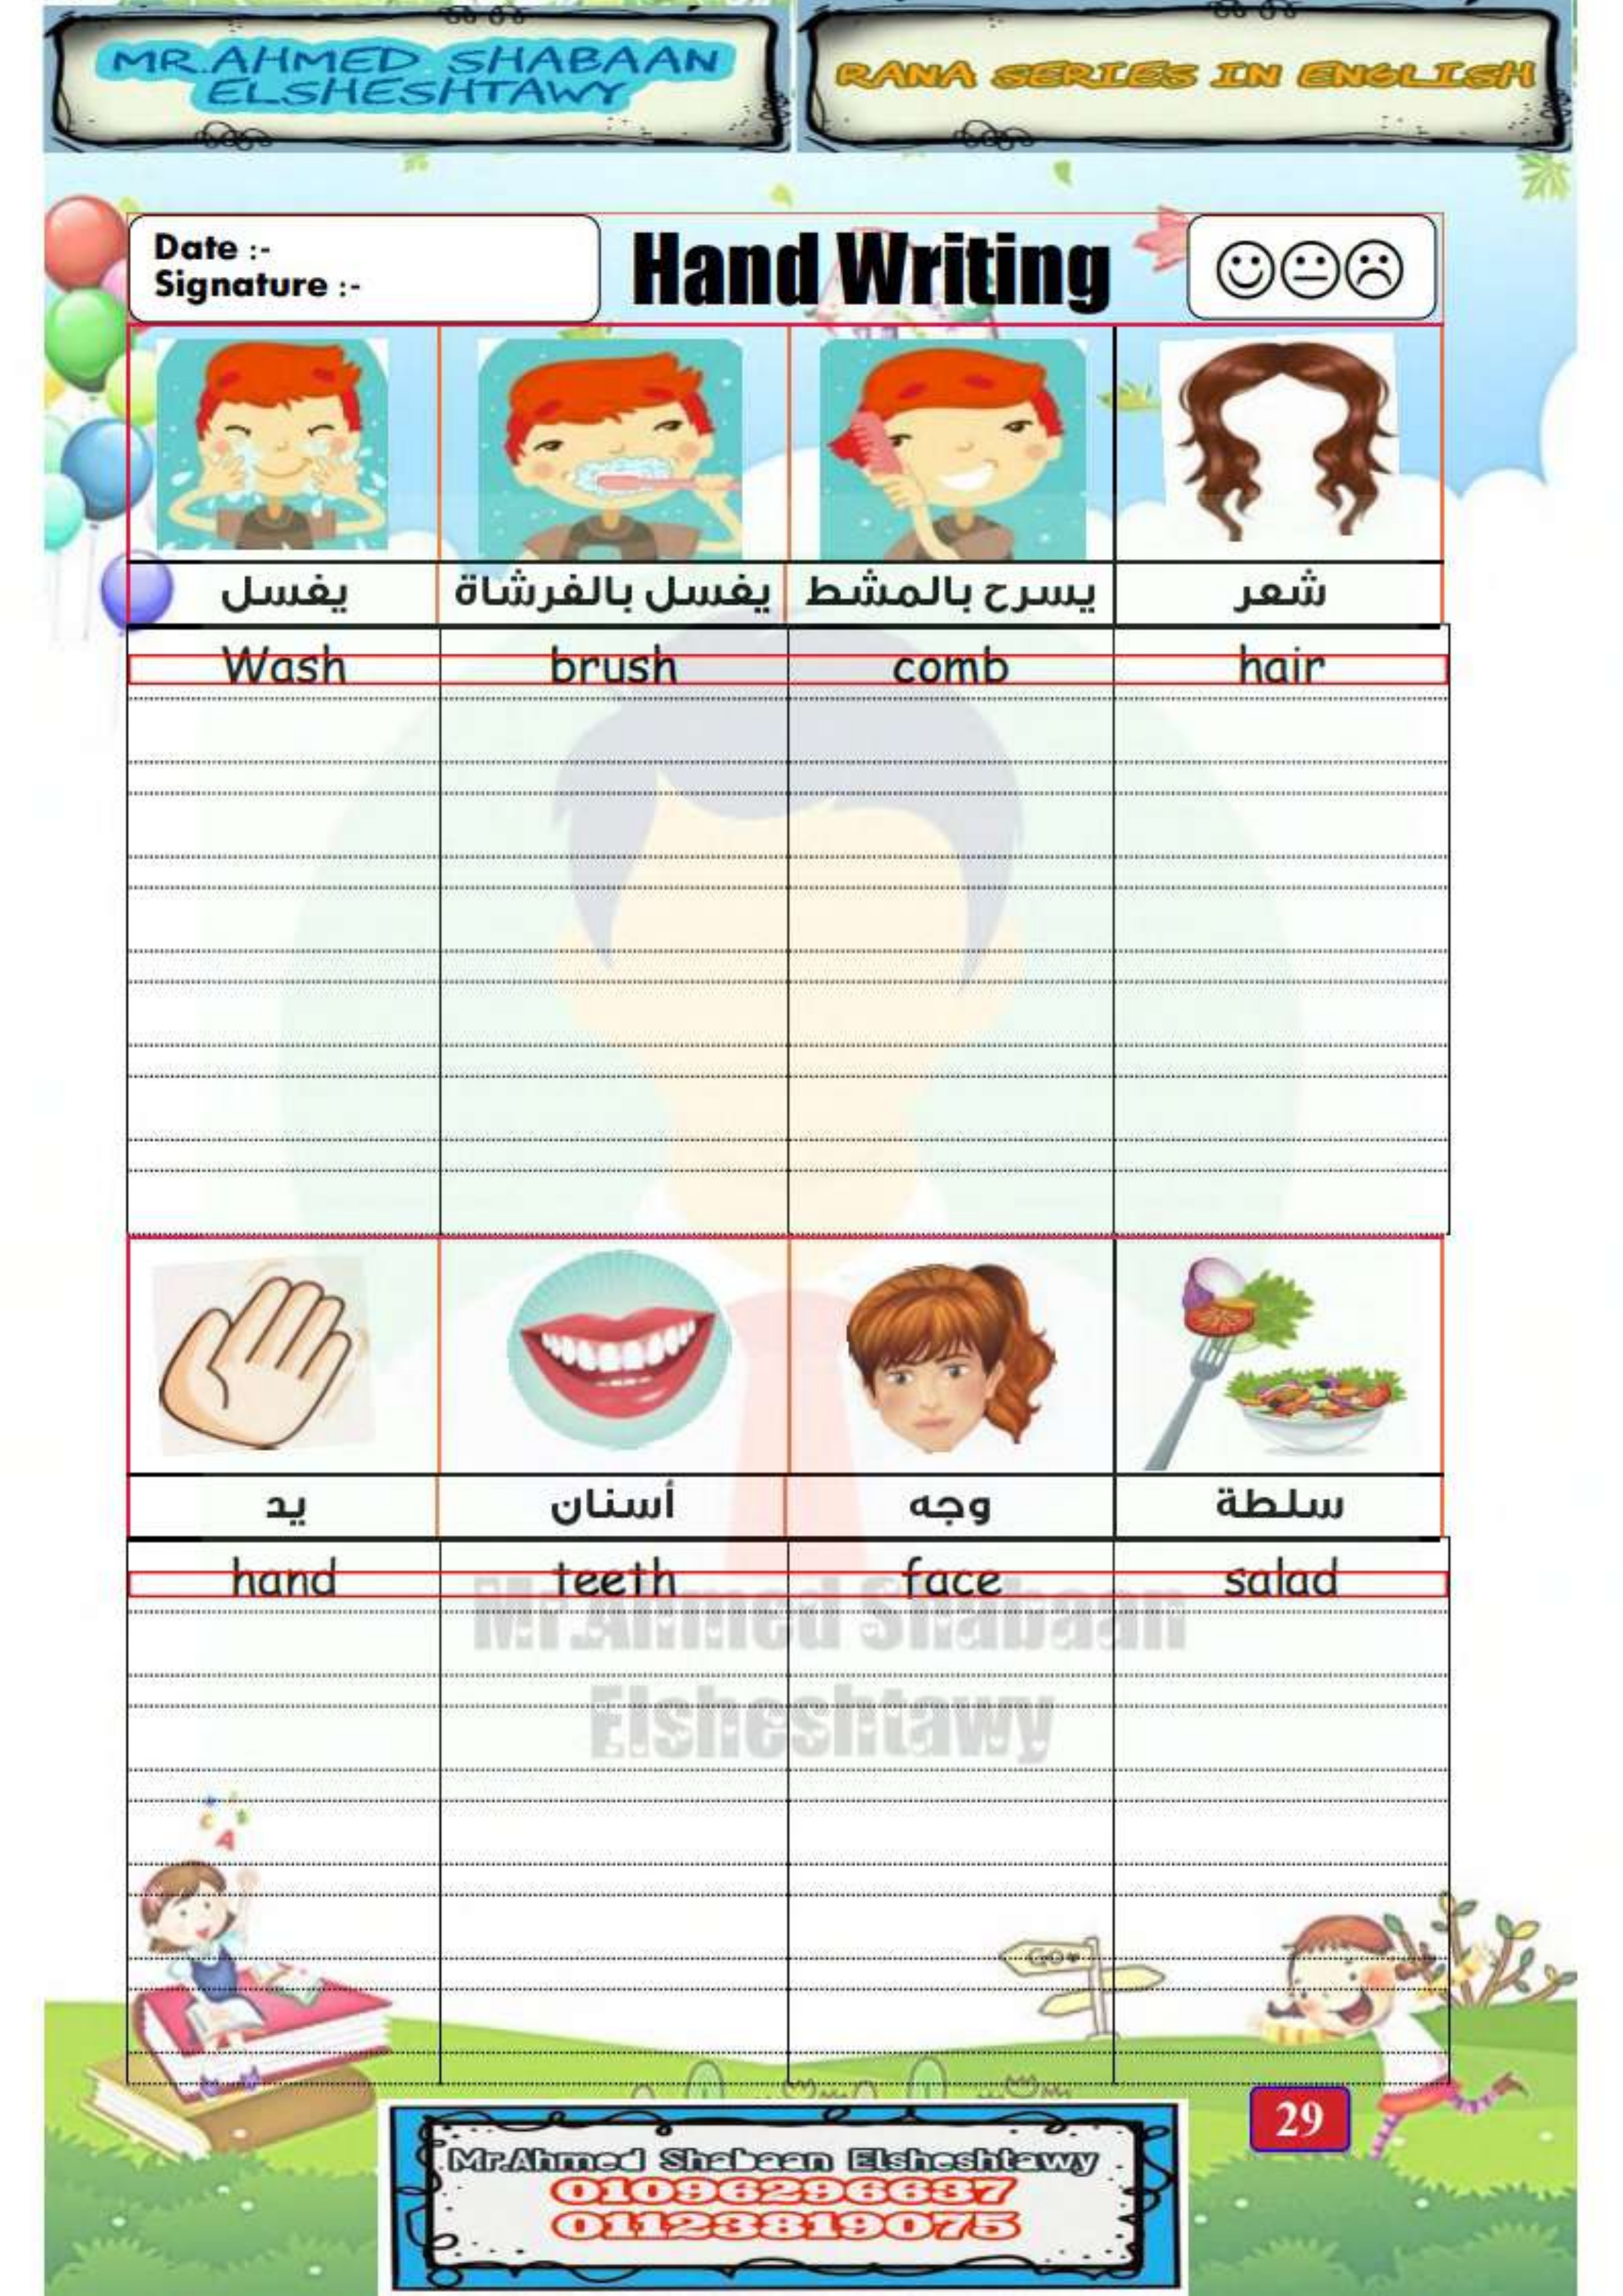 MR.AHMED SHABAAN
ELSHESHTAWY
RANA SERIES IN ENGLISH
Date :-
Signature :-
Hand Writing
يغسل
يغسل بالفرشاة
يسرح بالمشط
شعر
Wash
brush
comb
hair
يد
أسنان
وجه
سلطة
hand
teeth
face
salad
Mr.Ahmed Shabaan
Elsheshtawy
A
Go
29
Mr.Ahmed Shabaan Elsheshtawy
01096296637
01123819075